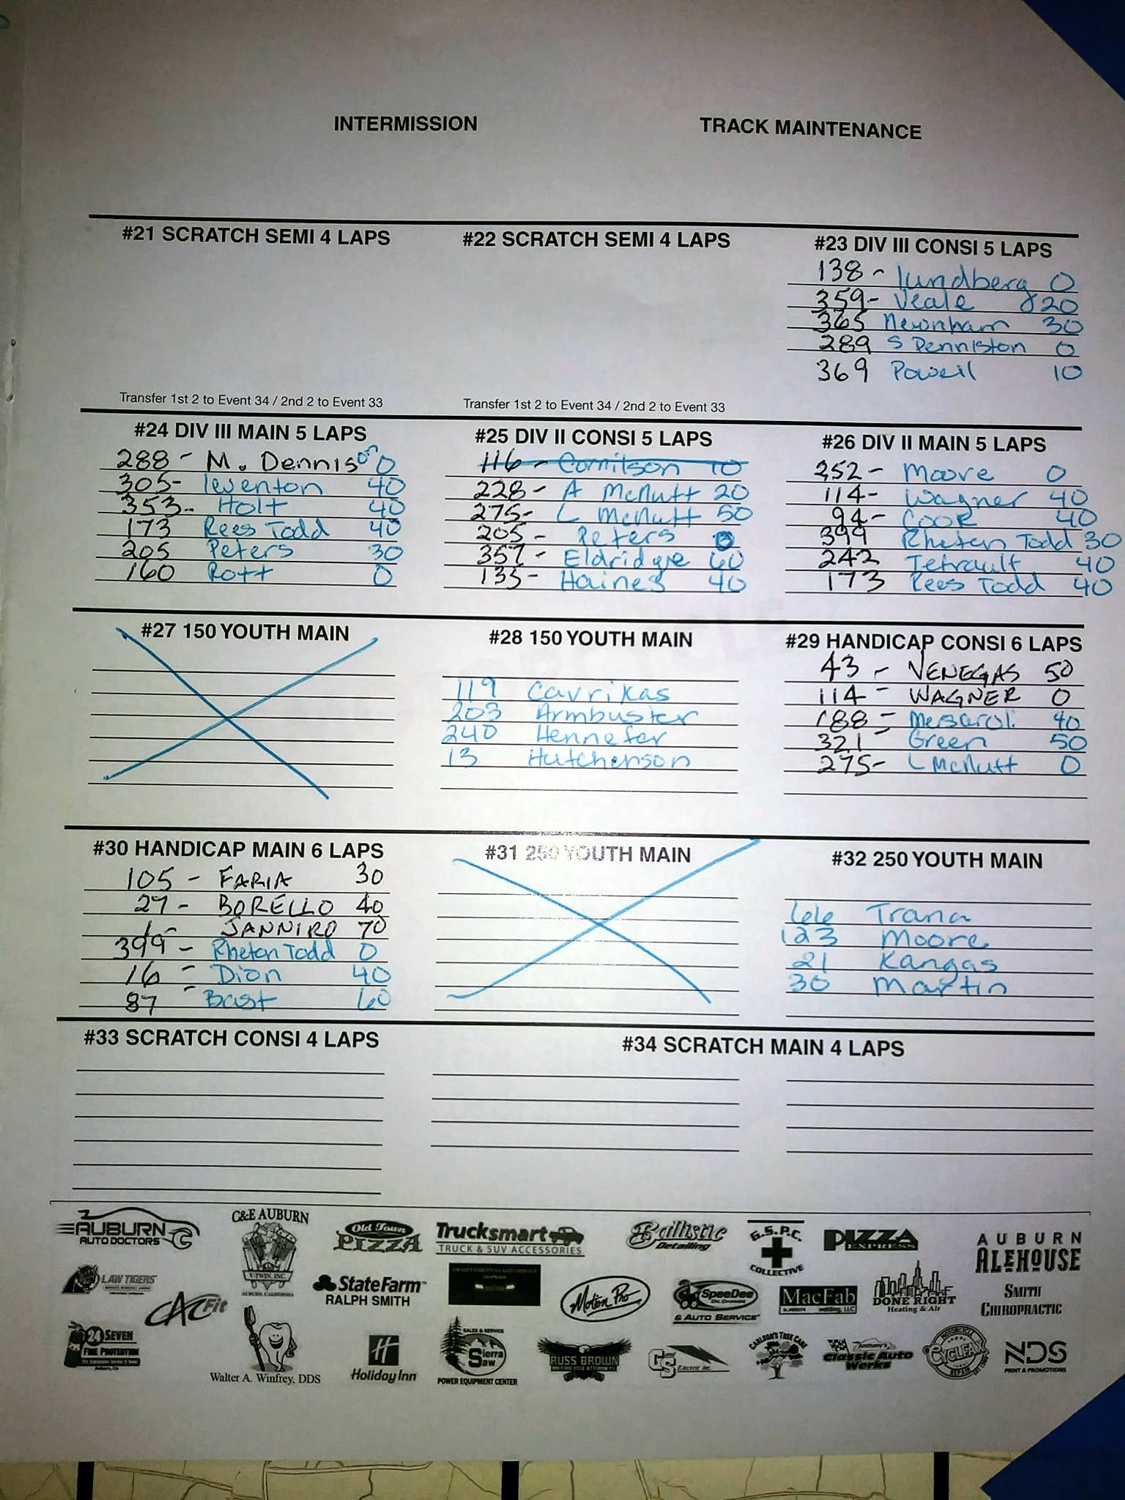 INTERMISSION
TRACK MAINTENANCE
#21 SCRATCH SEMI 4 LAPS
Transfer 1st 2 to Event 34 / 2nd 2 to Event 33
#22 SCRATCH SEMI 4 LAPS
Transfer 1st 2 to Event 34 / 2nd 2 to Event 33
#23 DIV III CONSI 5 LAPS
138 - Lundberg 0
359- Veale 20
365 Newnham 30
289 S Denniston 0
369 Powell 10
#24 DIV III MAIN 5 LAPS
288 - M. Denniston 0
305- Iventon 40
353- Holt 40
173 Rees Todd 40
205 Peters 30
160 Rott 0
#25 DIV II CONSI 5 LAPS
116 - Cornilson 10
228 - A McNutt 20
275- L McNutt 50
205 - Peters 0
357 - Eldridge 60
135- Haines 40
#26 DIV II MAIN 5 LAPS
252- Moore 0
114- Wagner 40
94- Cook 40
399 Rheton Todd 30
242 Tetrault 40
173 Rees Todd 40
#27 150 YOUTH MAIN
#28 150 YOUTH MAIN
119 Cavrikas
203 Armbuster
240 Hennefer
13 Hutchenson
#29 HANDICAP CONSI 6 LAPS
43 - VENEGAS 50
114 - WAGNER 0
188 - Mesaroli 40
321 - Green 50
275- L McNutt 0
#30 HANDICAP MAIN 6 LAPS
105 - FARIA 30
27 - BORELLO 40
1 - JANNIRO 70
399 - Rheton Todd 0
16 - Dion 40
87 - Bast 60
#31 250 YOUTH MAIN
#32 250 YOUTH MAIN
66 Trana
123 Moore
21 Kangas
30 Martin
#33 SCRATCH CONSI 4 LAPS
#34 SCRATCH MAIN 4 LAPS
AUBURN
AUTO DOCTORS
C&E AUBURN
V-TWIN, INC.
AUBURN, CALIFORNIA
Old Town
PIZZA
Trucksmart
TRUCK & SUV ACCESSORIES
Ballistic
Detailing
G.S.P.C.
COLLECTIVE
PIZZA
EXPRESS
AUBURN
ALEHOUSE
LAW TIGERS
CAC Fit
StateFarm
RALPH SMITH
Motion Pro
SpeeDee
& AUTO SERVICE
MacFab
DONE RIGHT
Heating & Air
SMITH
CHIROPRACTIC
24 SEVEN
FIRE PROTECTION
Walter A. Winfrey, DDS
Holiday Inn
SALES & SERVICE
Sierra
Saw
POWER EQUIPMENT CENTER
RUSS BROWN
GS
Electric Inc.
CARLSON'S TREE CARE
Anthony's
Classic Auto
Werks
MOTORCYCLE
CYCLEFAX
REPAIR
NDS
PRINT & PROMOTIONS